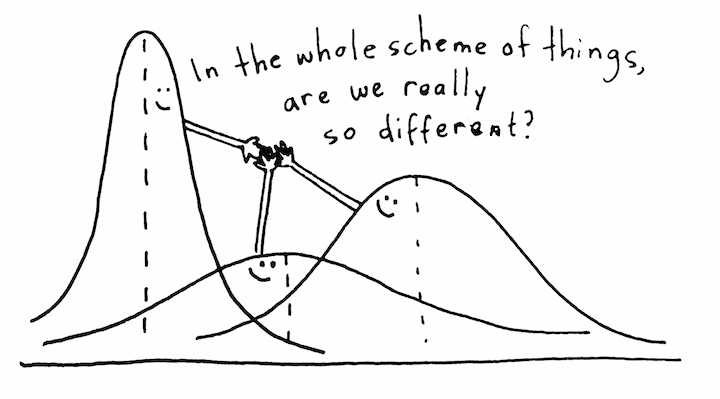 In the whole scheme of things,
are we really
so different?